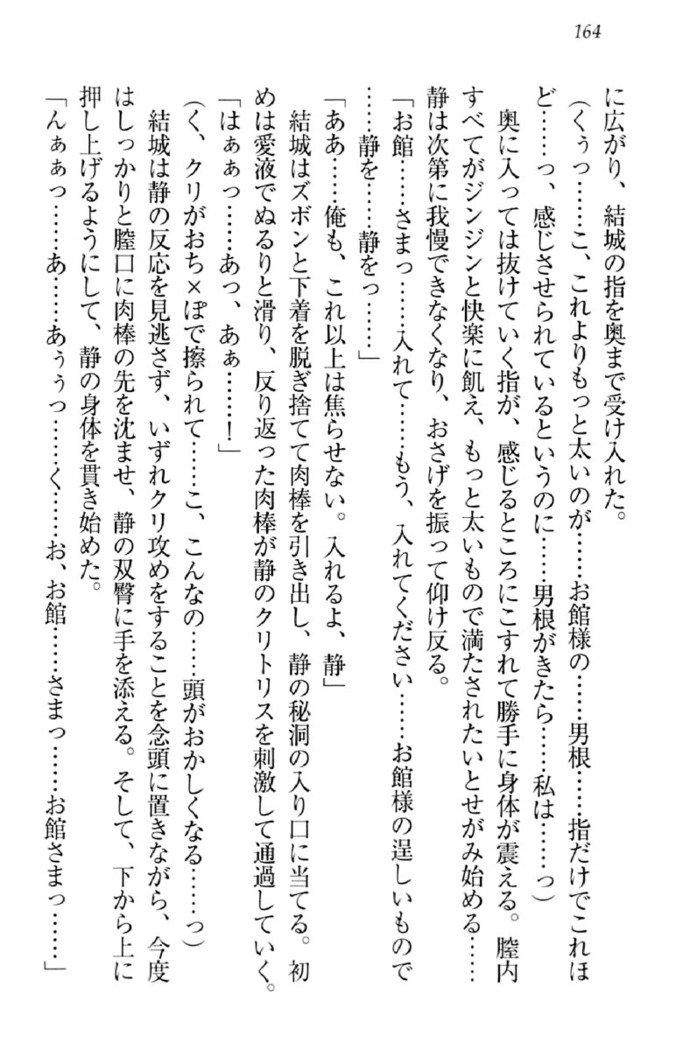 164
に広がり、結城の指を奥まで受け入れた。
（くぅっ……こ、これよりもっと太いのが……お館様の……男根……指だけでこれほ
ど……っ、感じさせられているというのに……男根がきたら……私は……っ）
奥に入っては抜けていく指が、感じるところにこすれて勝手に身体が震える。膣内
すべてがジンジンと快楽に飢え、もっと太いもので満たされたいとせがみ始める……
静は次第に我慢できなくなり、おさげを振って仰け反る。
「お館……さまっ……入れて……もう、入れてください……お館様の逞しいもので
……静を……静をっ……」
「ああ……俺も、これ以上は焦らせない。入れるよ、静」
結城はズボンと下着を脱ぎ捨てて肉棒を引き出し、静の秘洞の入り口に当てる。初
めは愛液でぬるりと滑り、反り返った肉棒が静のクリトリスを刺激して通過していく。
「はぁぁっ……あっ、あぁ……！」
（く、クリがおち×ぽで擦られて……こ、こんなの……頭がおかしくなる……っ）
結城は静の反応を見逃さず、いずれクリ攻めをすることを念頭に置きながら、今度
はしっかりと膣口に肉棒の先を沈ませ、静の双臀に手を添える。そして、下から上に
押し上げるようにして、静の身体を貫き始めた。
「んぁぁっ……あ……あぅぅっ……く……お、お館……さまっ……お館さまっ……」